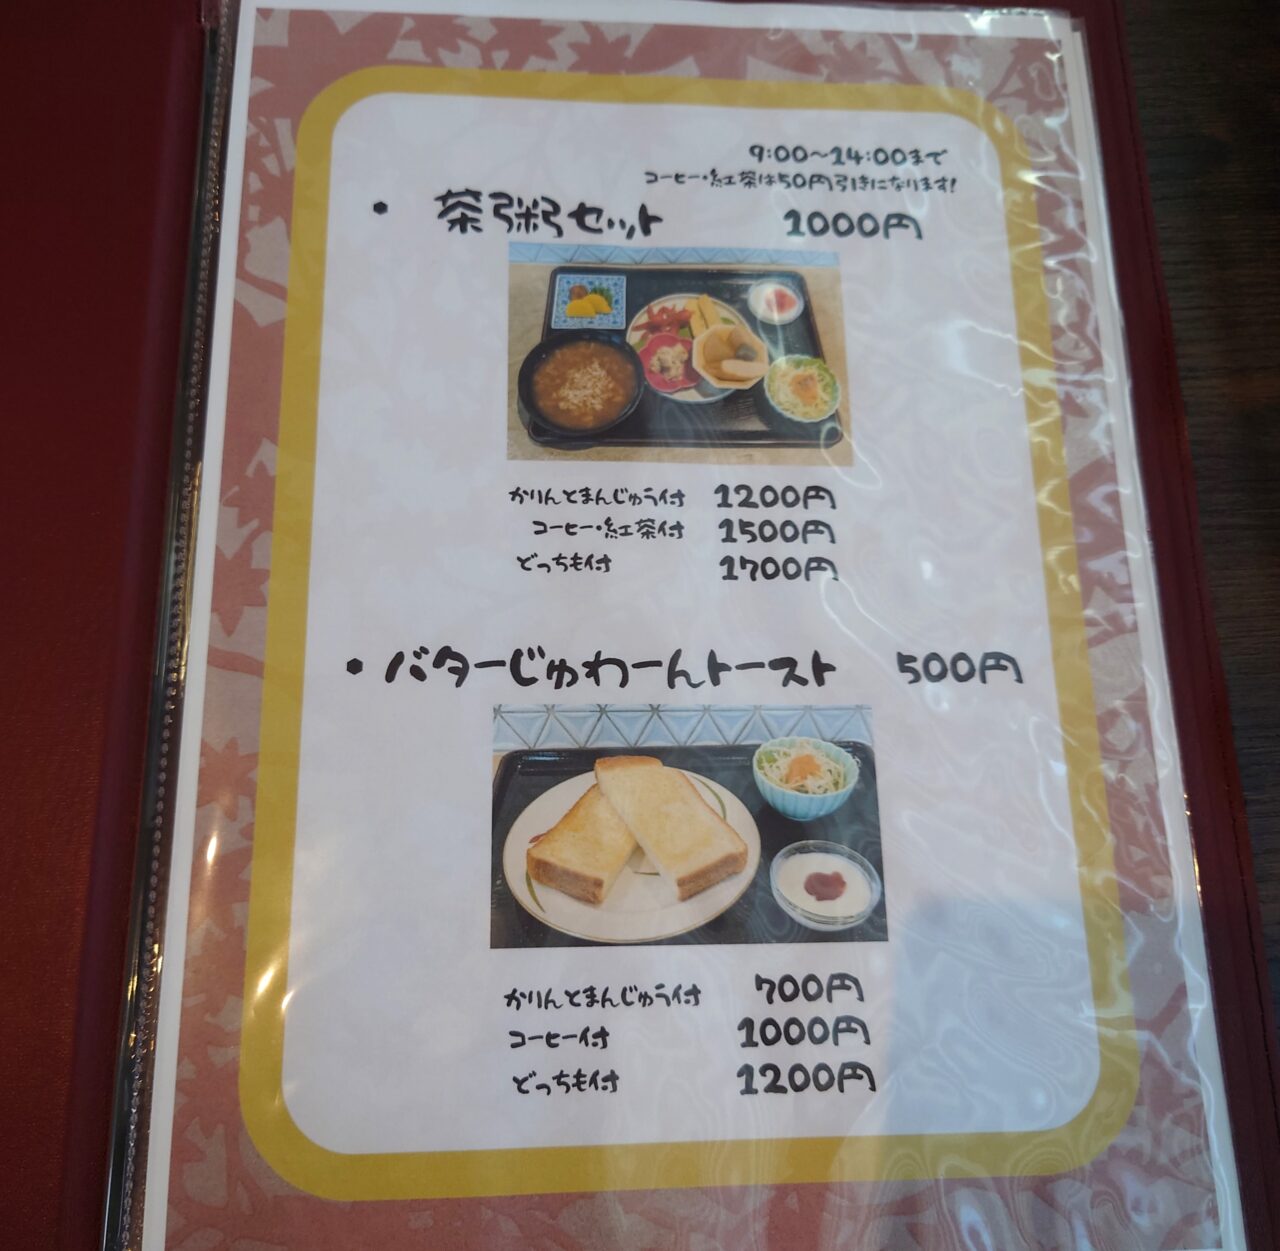 9:00〜14:00まで
コーヒー・紅茶は50円引きになります!
・ 茶粥セット 1000円
かりんとまんじゅう付 1200円
コーヒー・紅茶付 1500円
どっちも付 1700円
・バターじゅわーんトースト 500円
かりんとまんじゅう付 700円
コーヒー付 1000円
どっちも付 1200円